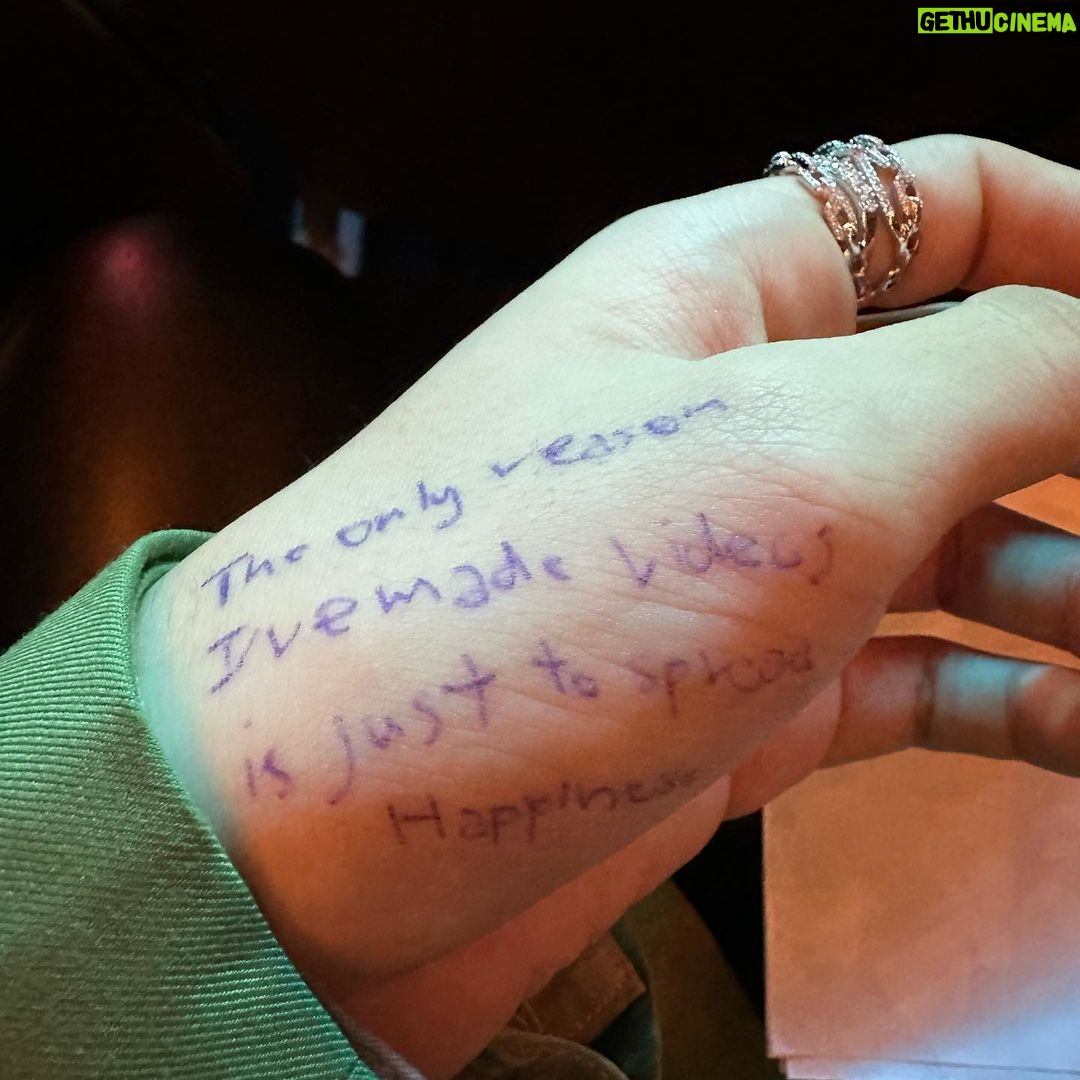 GETHUCINEMA
The only reason
I've made videos
is just to spread
Happiness